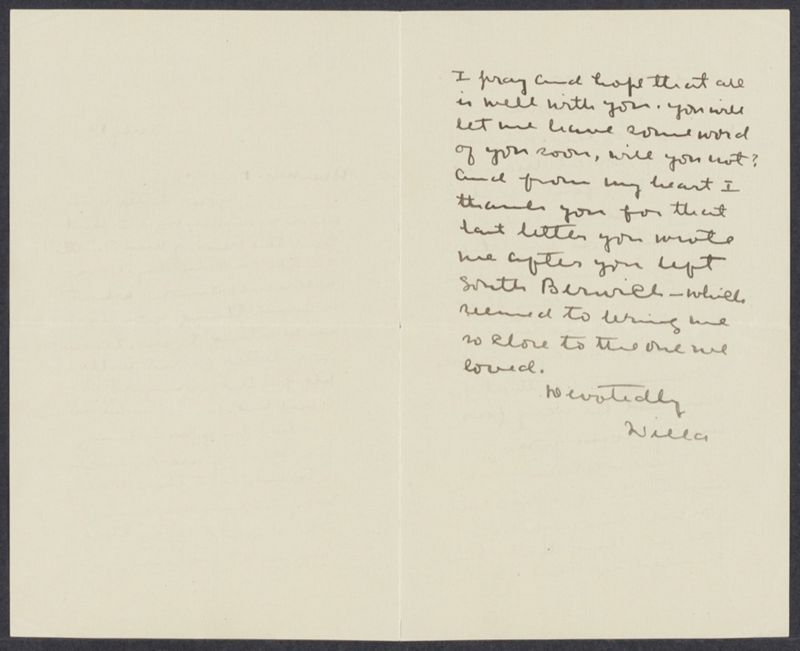 I pray and hope that all
is well with you. You will
let me have some word
of you soon, will you not?
And from my heart I
thank you for that
last letter you wrote
me after you left
South Berwick—which
seemed to bring me
so close to the one we
loved.
Devotedly
Willa